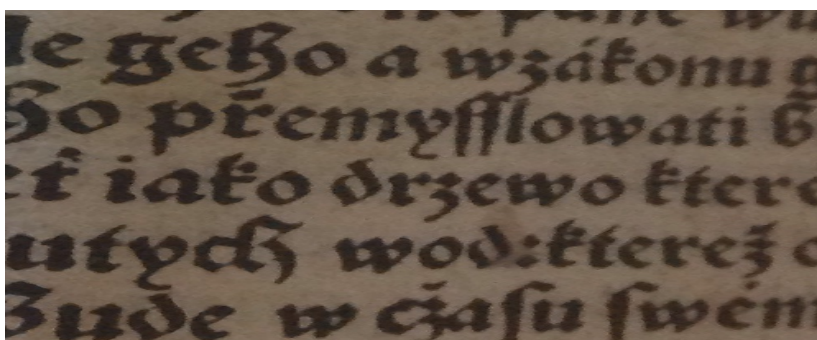 le geho a wzákonu g
ho přemyſſlowati b
eť iako drzewo ktere
utych wod:kterež o
bude w čaſu ſwém